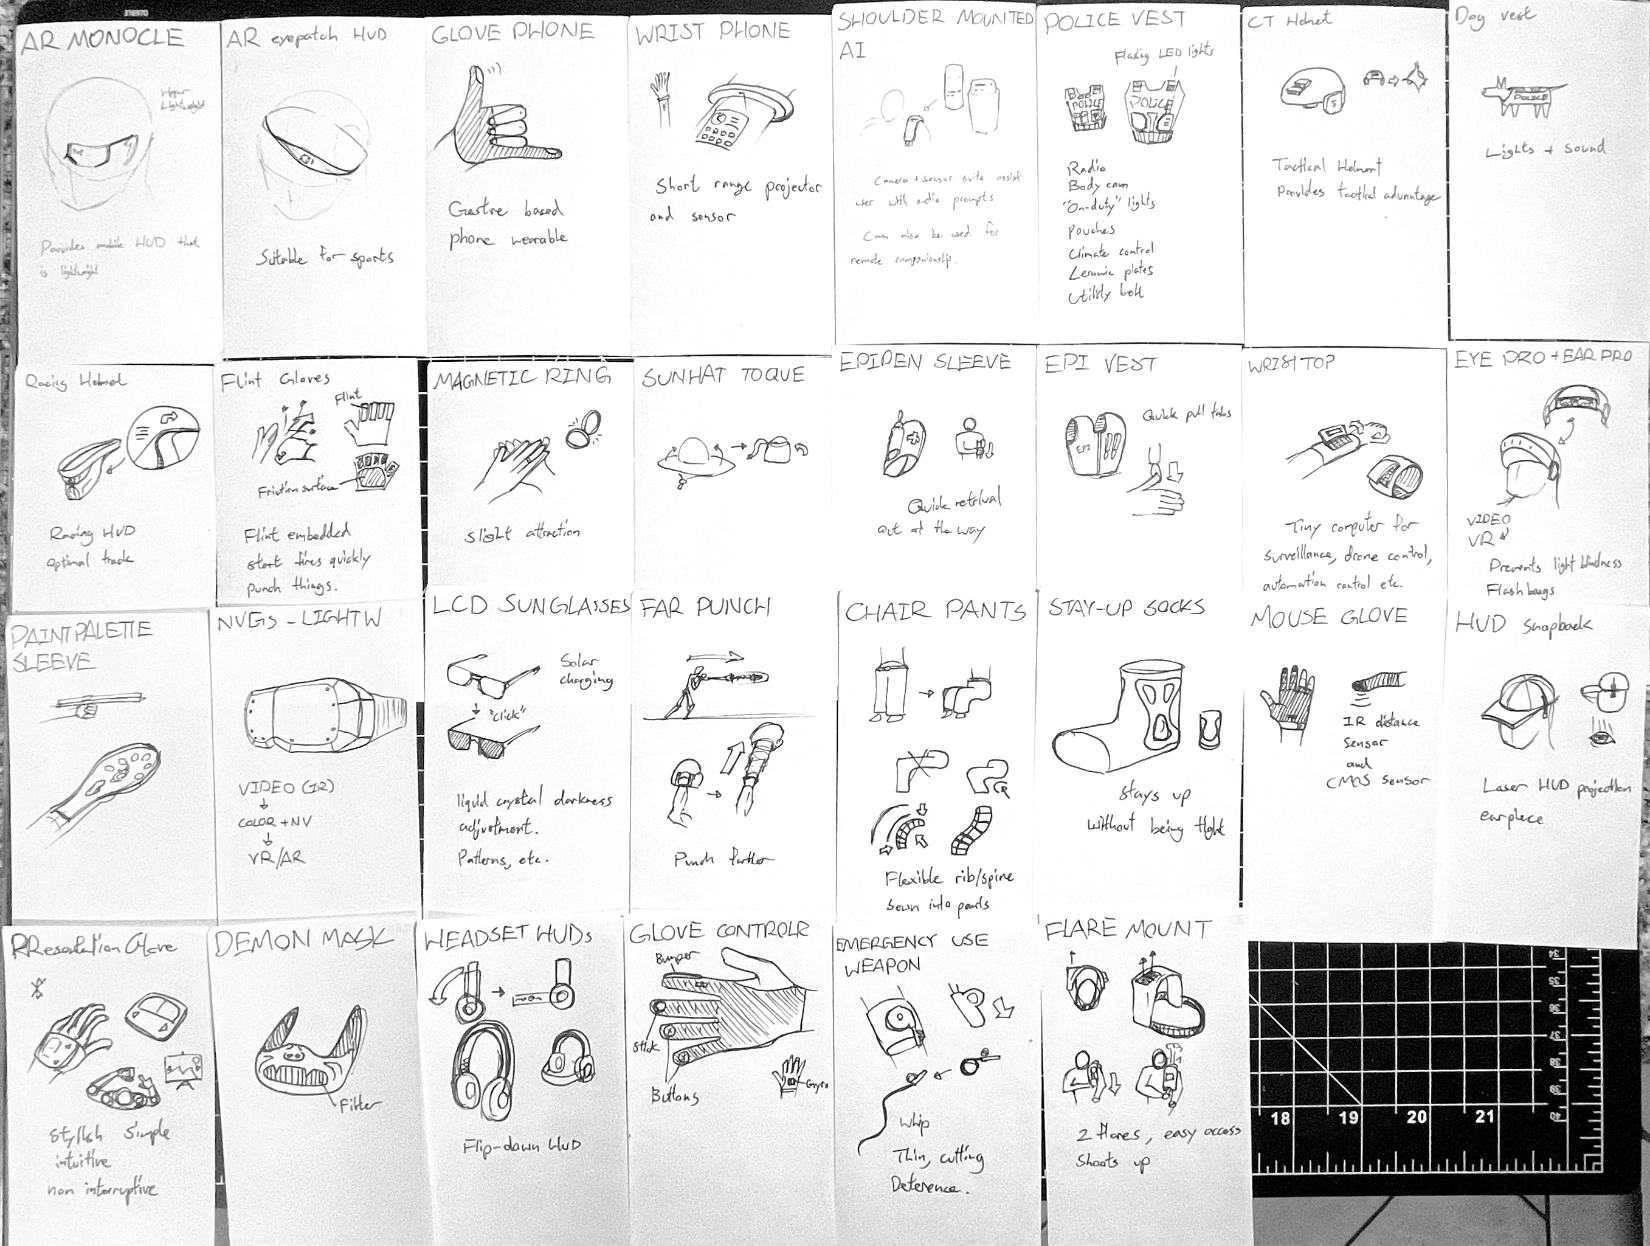 AR MONOCLE
Hyper
Lightweight
Provides mobile HUD that
is lightweight
AR eyepatch HUD
Suitable for sports
GLOVE PHONE
Gestre based
phone wearable
WRIST PHONE
Short range projector
and sensor
SHOULDER MOUNTED
AI
Camera + sensor suite assist
user with audio prompts.
Can also be used for
remote companionship.
POLICE VEST
Flasing LED lights
POLICE
POLICE
Radio
Body cam
"On-duty" lights
Pouches
Climate control
Ceramic plates
Utility belt
CT Helmet
Tactical Helmet
Provides tactical advantage
Dog vest
POLICE
Lights + Sound
Racing Helmet
Racing HUD
Optimal track
Flint Gloves
Flint
Friction surface
Flint embedded
start fires quickly
Punch things.
MAGNETIC RING
slight attraction
SUNHAT TOQUE
EPIPEN SLEEVE
Quick retrival
Out of the way
EPI VEST
EPI
Quick pull tabs
WRISTTOP
Tiny computer for
surveillance, drone control,
automation control etc.
EYE PRO + EAR PRO
VIDEO
VR
Prevents light blindness
Flashbangs
PAINT PALETTE
SLEEVE
NVGS - LIGHTW
VIDEO (IR)
↓
COLOR + NV
↓
VR/AR
LCD SUNGLASSES
Solar
charging
"click"
liquid crystal darkness
adjustment.
Patterns, etc.
FAR PUNCH
Punch farther
CHAIR PANTS
Flexible rib/spine
sewn into pants
STAY-UP SOCKS
Stays up
without being tight
MOUSE GLOVE
IR distance
Sensor
and
CMOS sensor
HUD snapback
Laser HUD projection
earpiece
PResentation Glove
Stylish simple
intuitive
non interruptive
DEMON MASK
Filter
HEADSET HUDs
Flip-down HUD
GLOVE CONTROLR
Bumper
Stick
Buttons
Gyro
EMERGENCY USE
WEAPON
Whip
Thin, cutting
Deterence.
FLARE MOUNT
2 flares, easy access
Shoots up
18 19 20 21